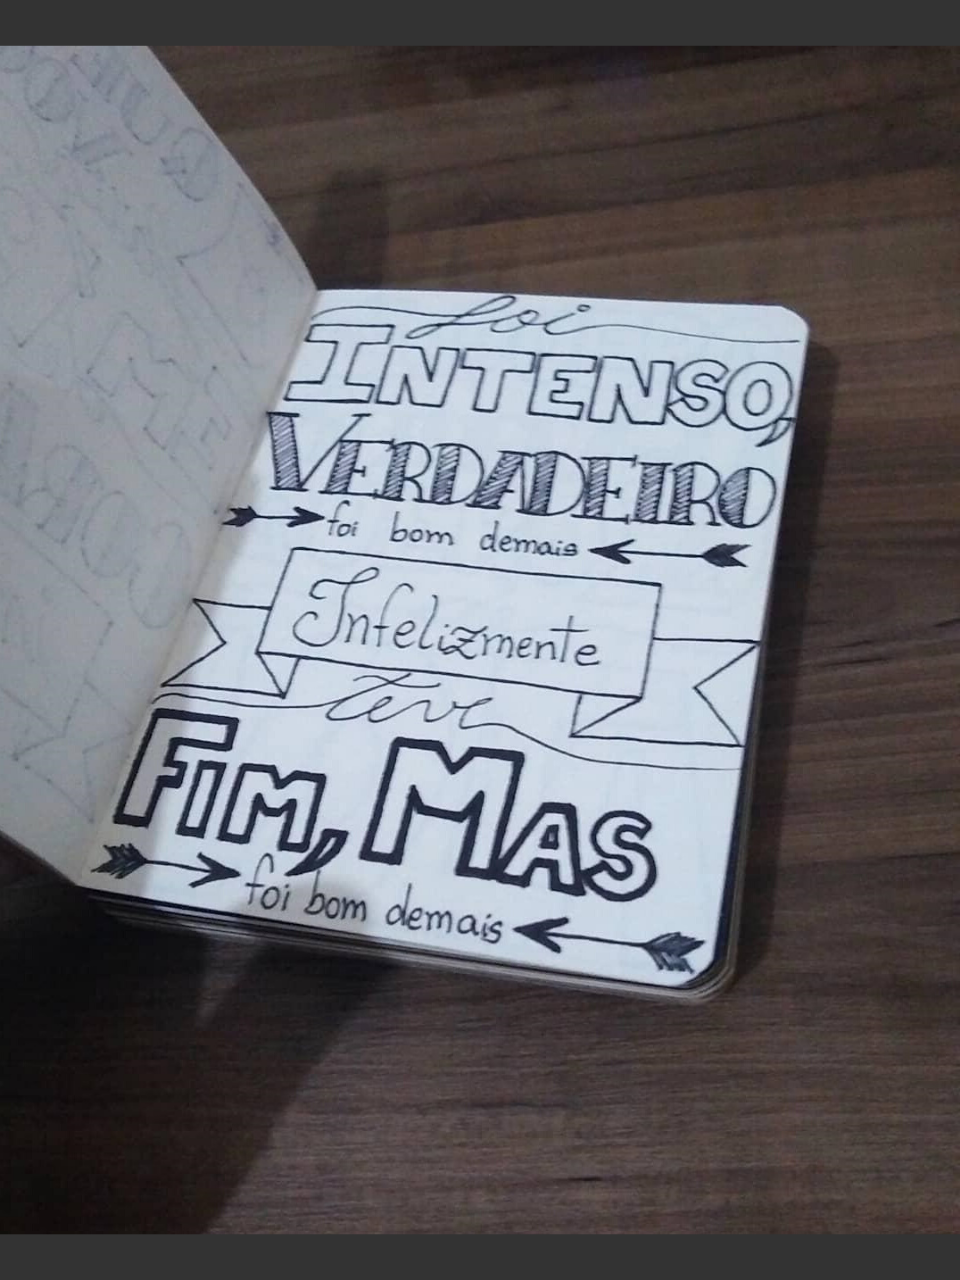 foi
INTENSO,
VERDADEIRO
foi bom demais
Infelizmente
teve
FIM, MAS
foi bom demais